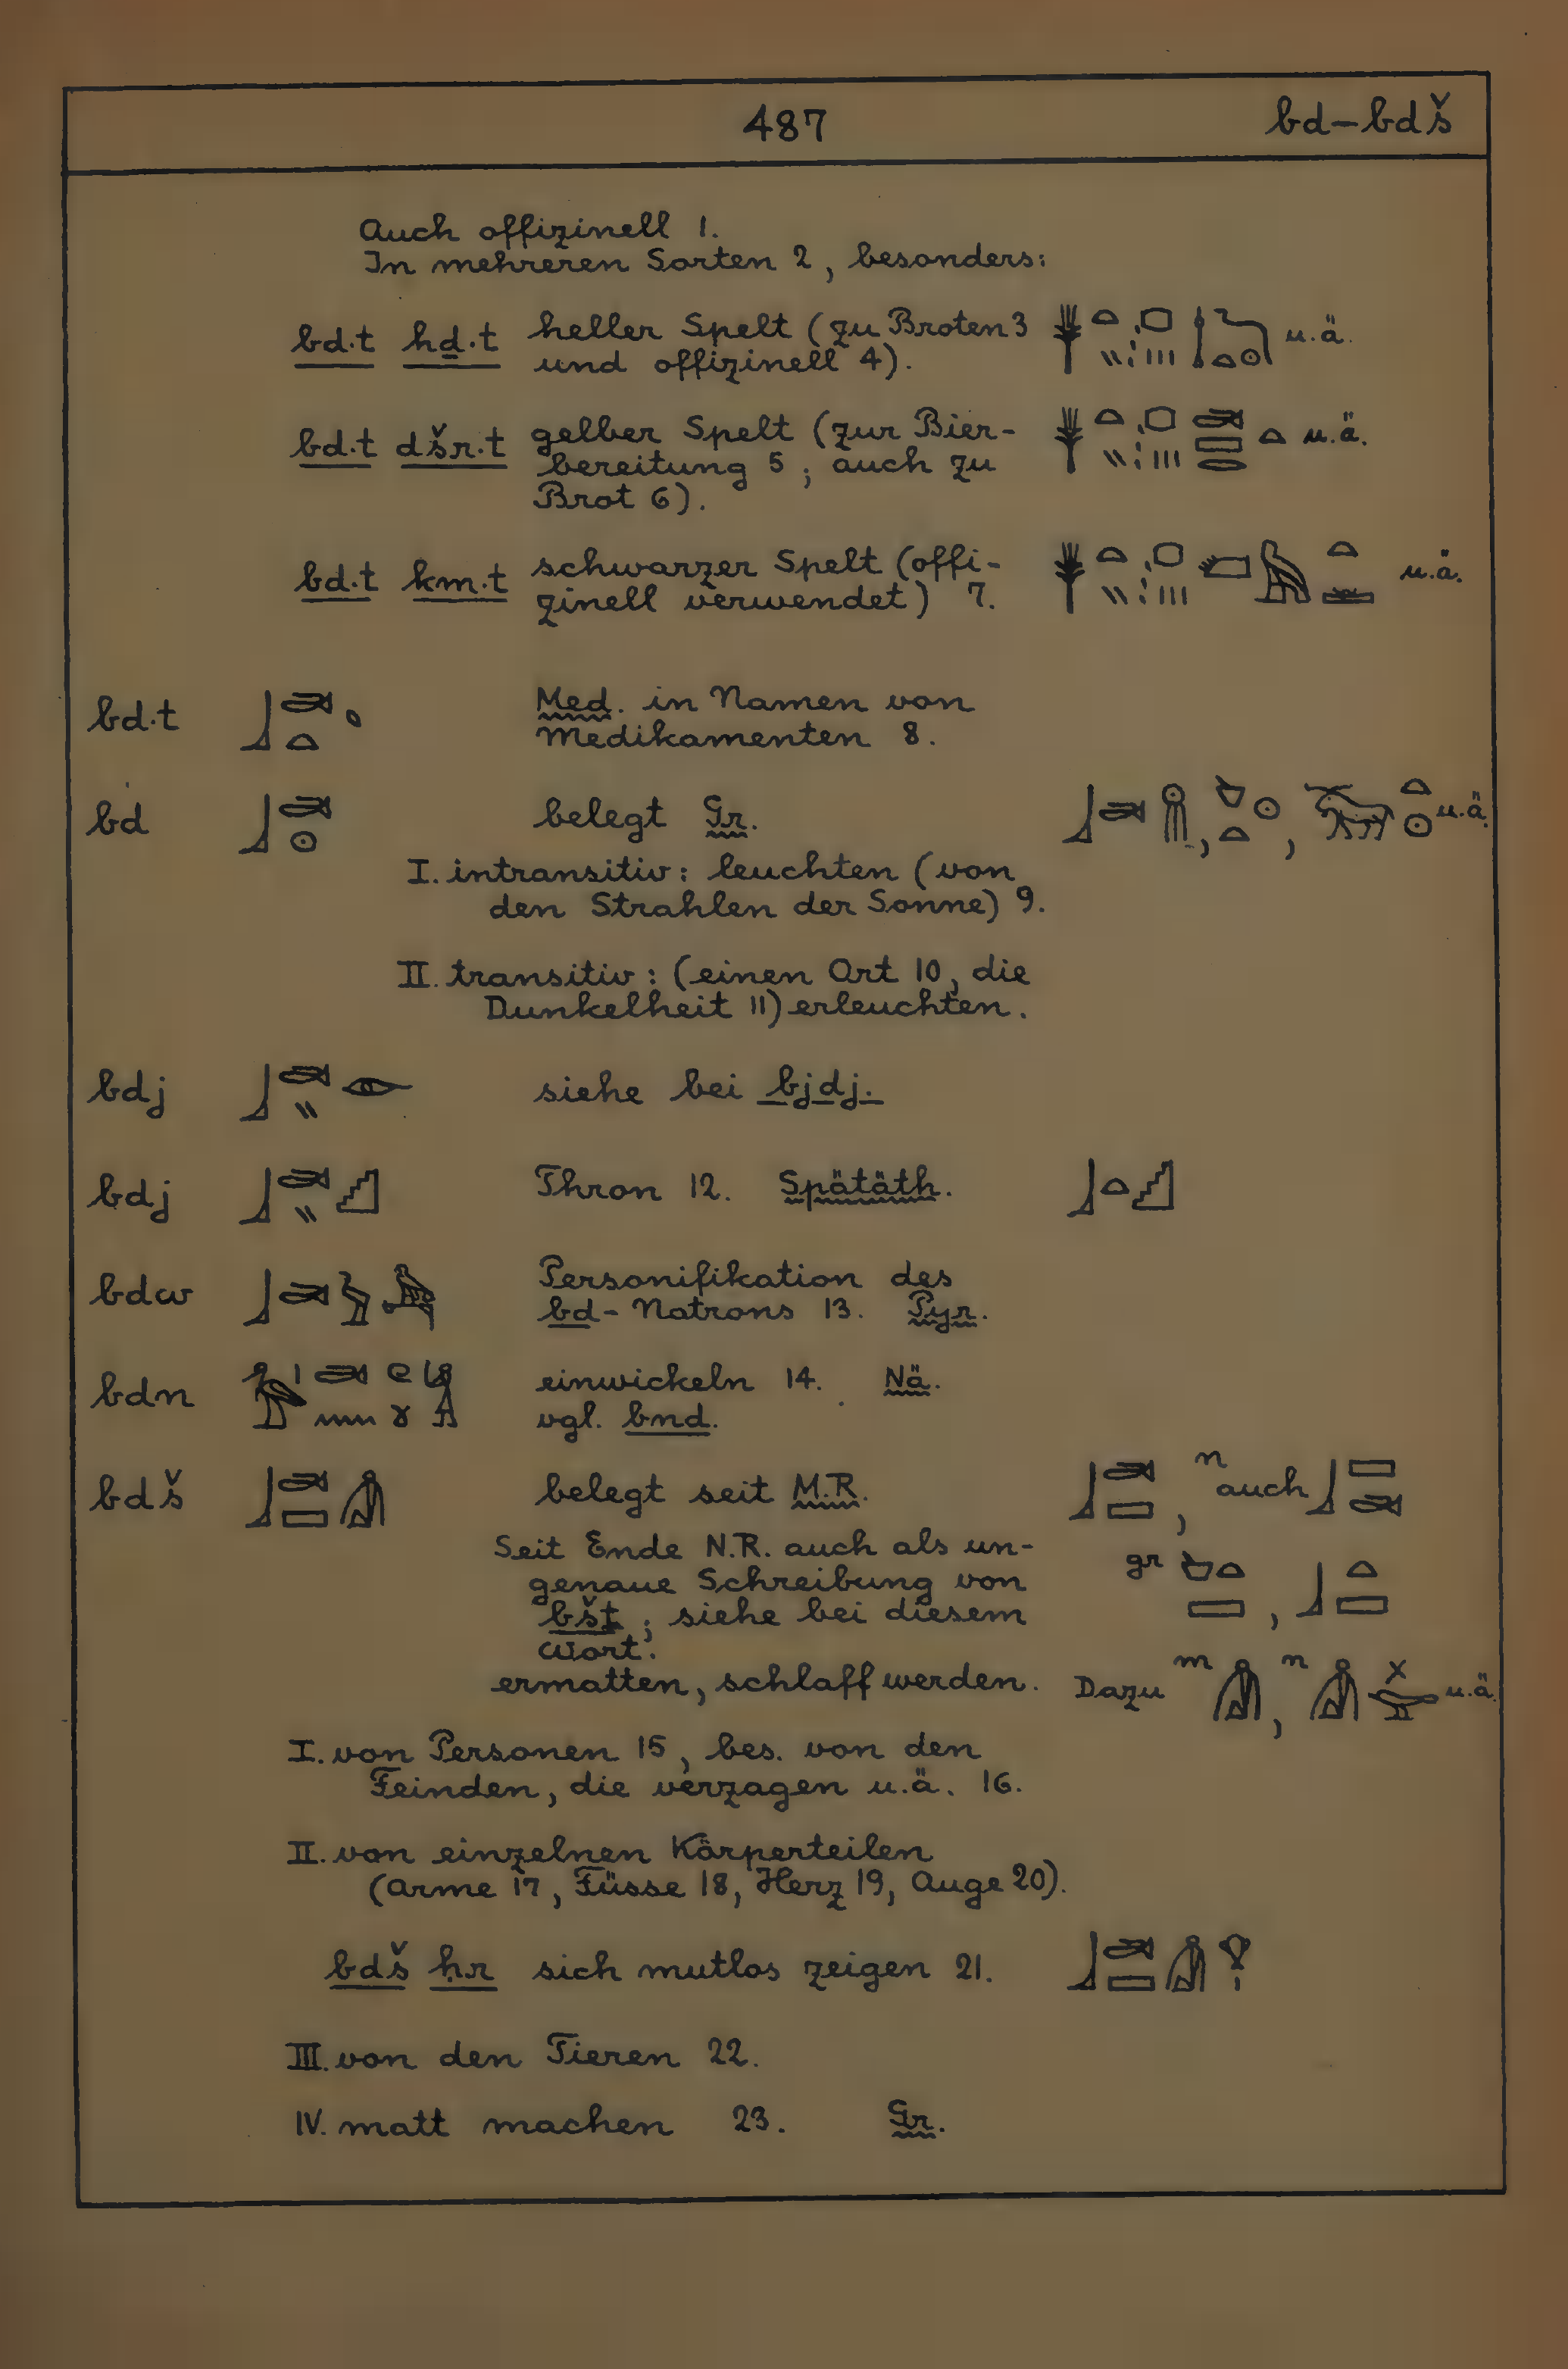 487
bd–bdš
Auch offizinell 1.
In mehreren Sorten 2, besonders:
bd.t ḥḏ.t heller Spelt (zu Broten 3 u.ä.
und offizinell 4).
bd.t dšr.t gelber Spelt (zur Bier- u.ä.
bereitung 5; auch zu
Brot 6).
bd.t km.t schwarzer Spelt (offi- u.ä.
zinell verwendet) 7.
bd.t Med. in Namen von
Medikamenten 8.
bd belegt Gr. u.ä.
I. intransitiv: leuchten (von
den Strahlen der Sonne) 9.
II. transitiv: (einen Ort 10, die
Dunkelheit 11) erleuchten.
bdj siehe bei bjdj.
bdj Thron 12. Spätäth.
bdw Personifikation des
bd-Natrons 13. Pyr.
bdn einwickeln 14. Nä.
vgl. bnd.
bdš belegt seit M.R. , n auch
Seit Ende N.R. auch als un-
genaue Schreibung von gr
bšt; siehe bei diesem
Wort.
ermatten, schlaff werden. Dazu m , n u.ä.
I. von Personen 15, bes. von den
Feinden, die verzagen u.ä. 16.
II. von einzelnen Körperteilen
(Arme 17, Füsse 18, Herz 19, Auge 20).
bdš ḥr sich mutlos zeigen 21.
III. von den Tieren 22.
IV. matt machen 23. Gr.